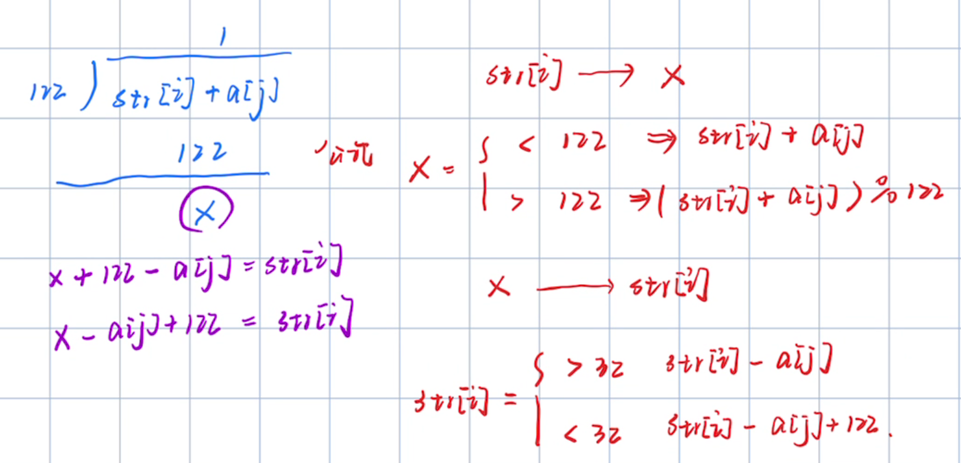 1
122 ) str[i] + a[j]
122
X
x + 122 - a[j] = str[i]
x - a[j] + 122 = str[i]
str[i] → X
X = { < 122 ⇒ str[i] + a[j]
> 122 ⇒ ( str[i] + a[j] ) % 122
X → str[i]
str[i] = { > 32 str[i] - a[j]
< 32 str[i] - a[j] + 122.